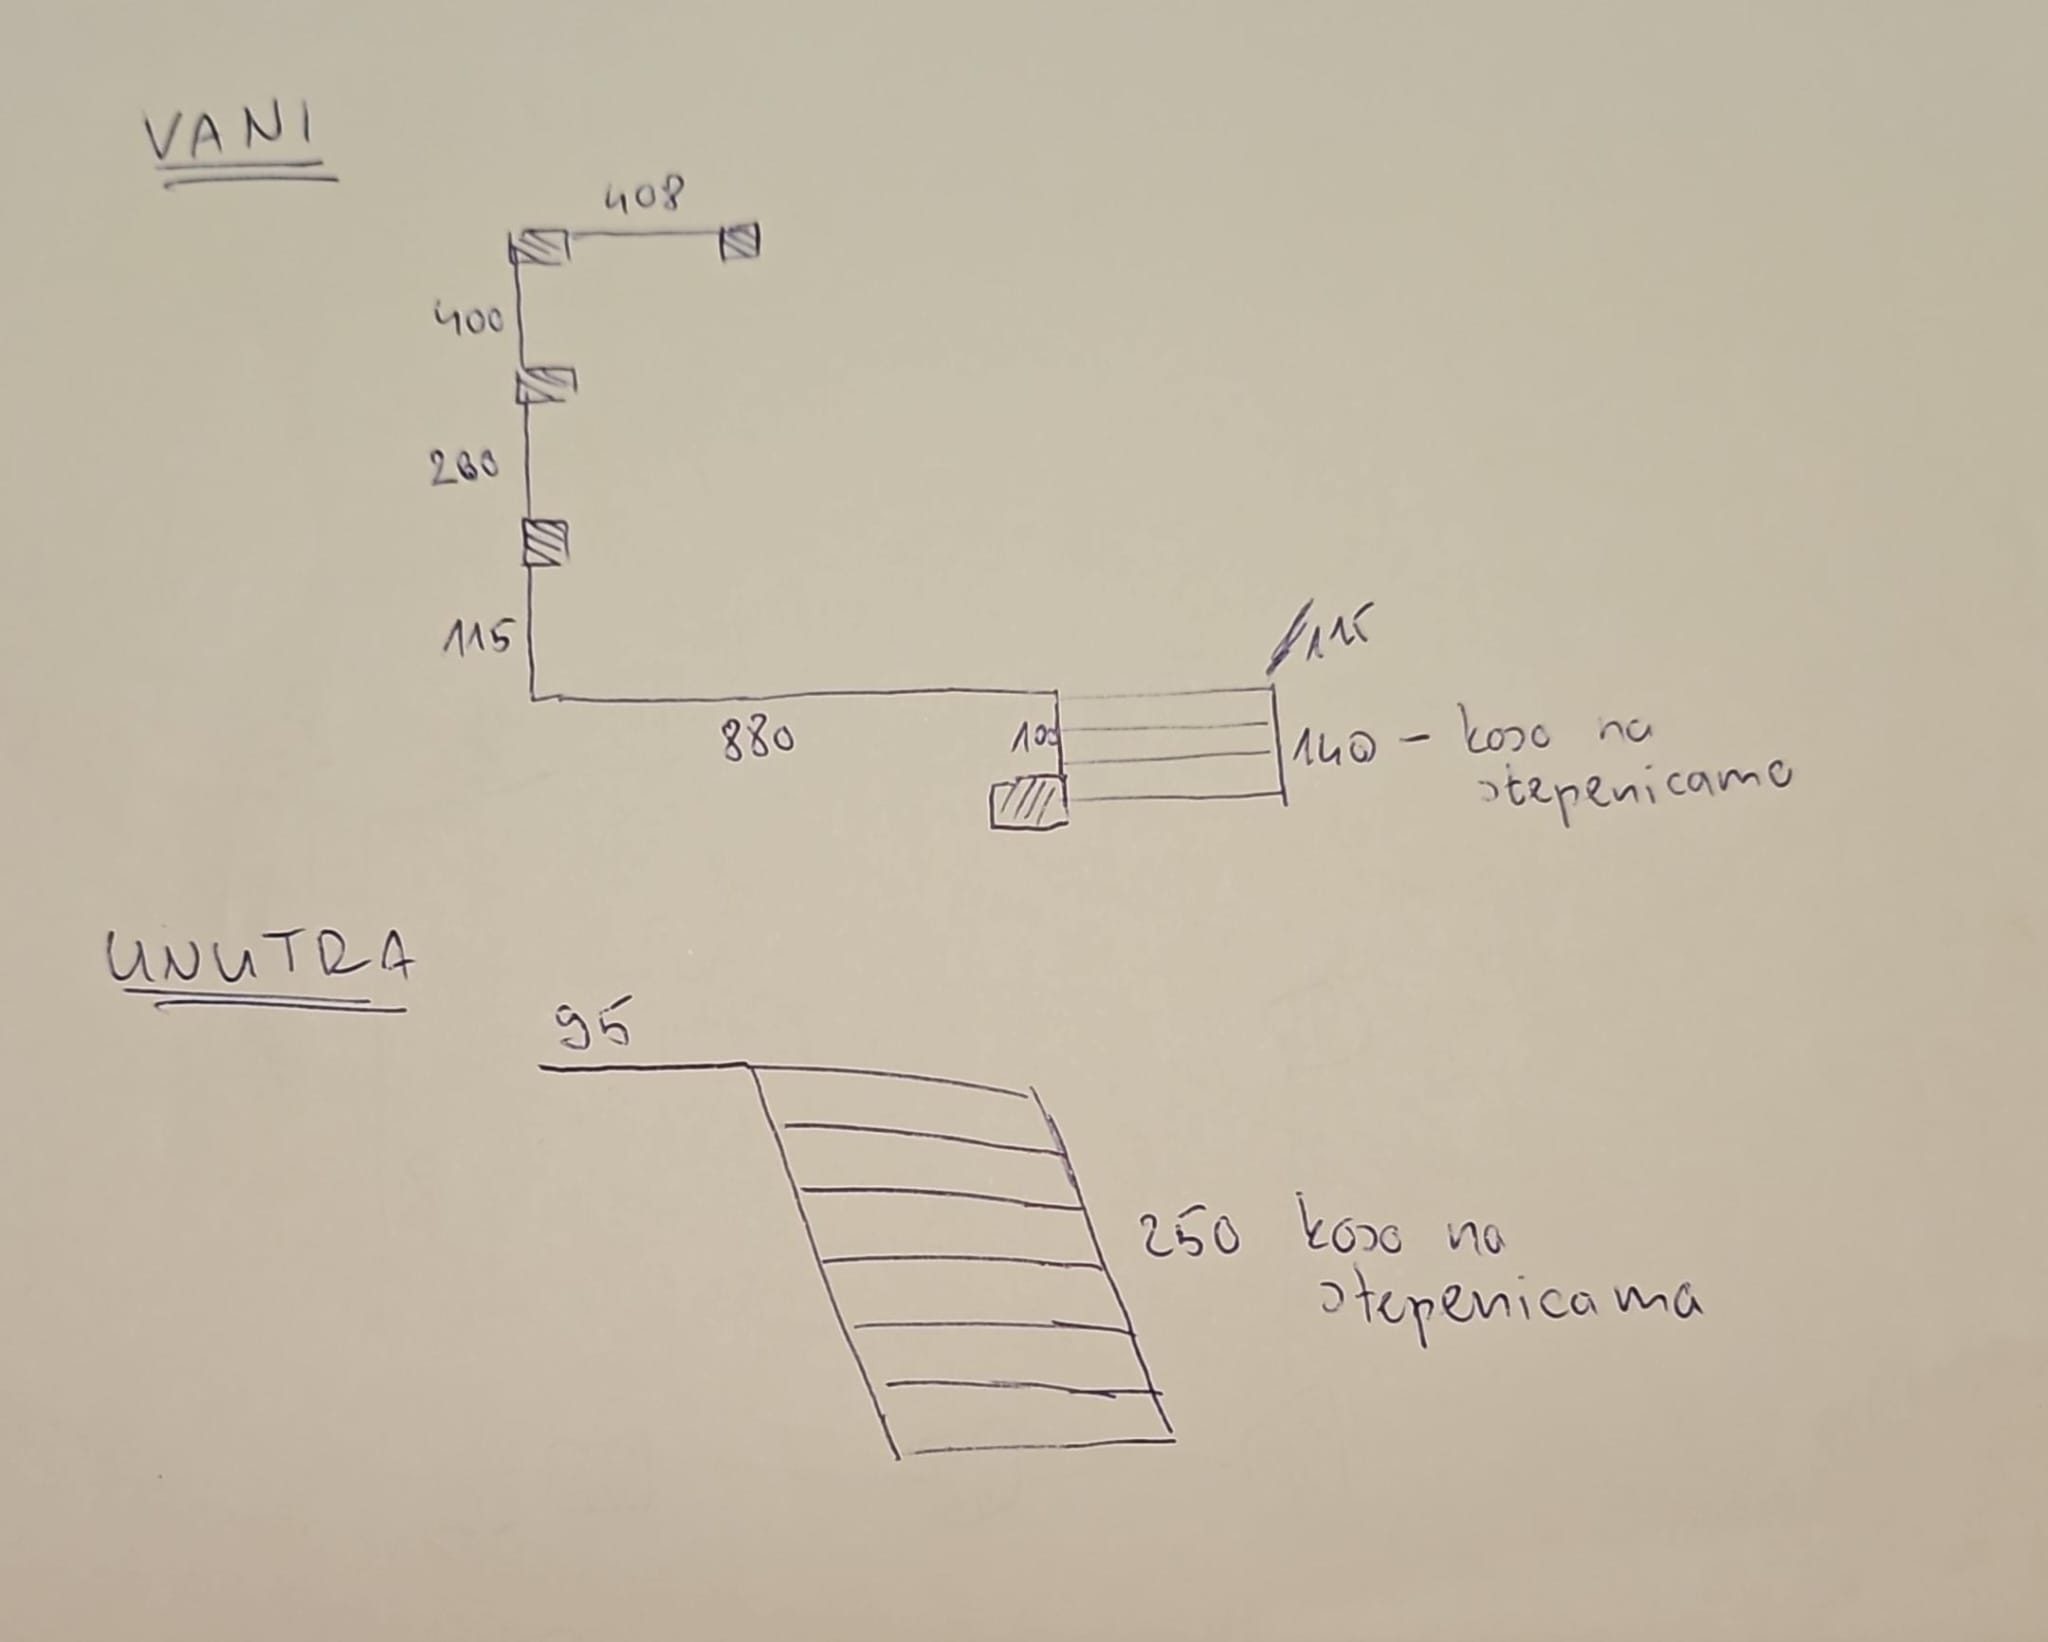 VANI
408
400
115
115
880
100
140 - koso na
stepenicama
UNUTRA
95
250 koso na
stepenicama